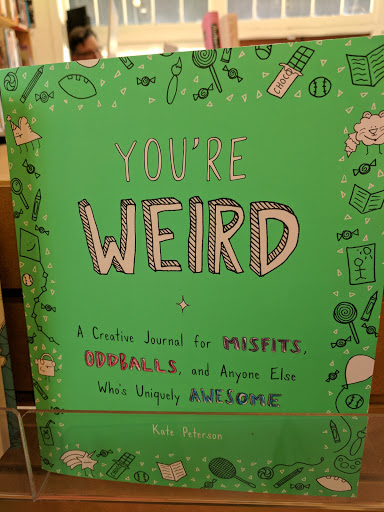 CHOCO
YOU'RE
WEIRD
A Creative Journal for MISFITS,
ODDBALLS, and Anyone Else
Who's Uniquely AWESOME
Kate Peterson